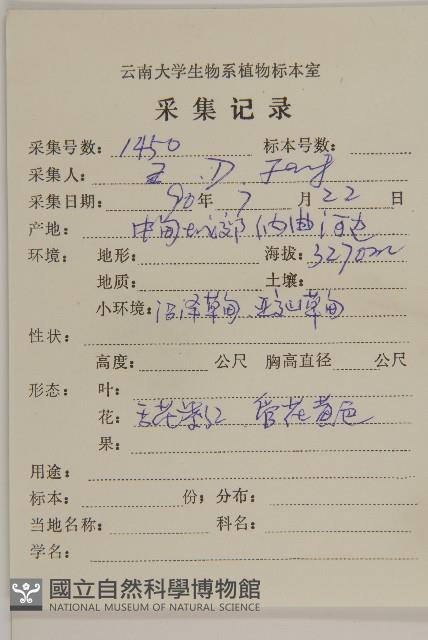 云南大学生物系植物标本室
采集记录
采集号数: 1450 标本号数:
采集人: 王
采集日期: 90年7月22日
产地: 中甸 纳曲河边
环境: 地形: 海拔: 3270m
地质: 土壤:
小环境: 沼泽草甸 亚高山草甸
性状:
高度: 公尺 胸高直径 公尺
形态: 叶:
花: 舌花紫红 管花黄色
果:
用途:
标本: 份; 分布:
当地名称: 科名:
学名:
國立自然科學博物館
NATIONAL MUSEUM OF NATURAL SCIENCE